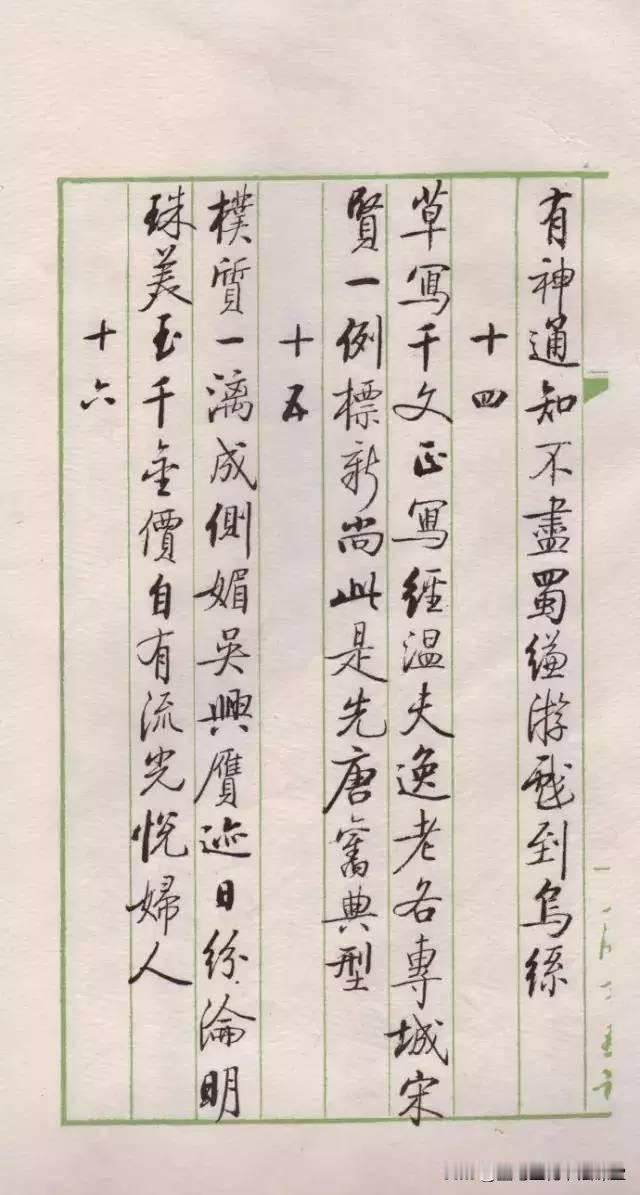 有神通知不盡蜀縑游戲到烏絲
十四
草寫千文正寫經溫夫逸老各專城宋
賢一例標新尚此是先唐舊典型
十五
樸質一漓成側媚吳興贗迹日紛淪明
珠美玉千金價自有流光悅婦人
十六